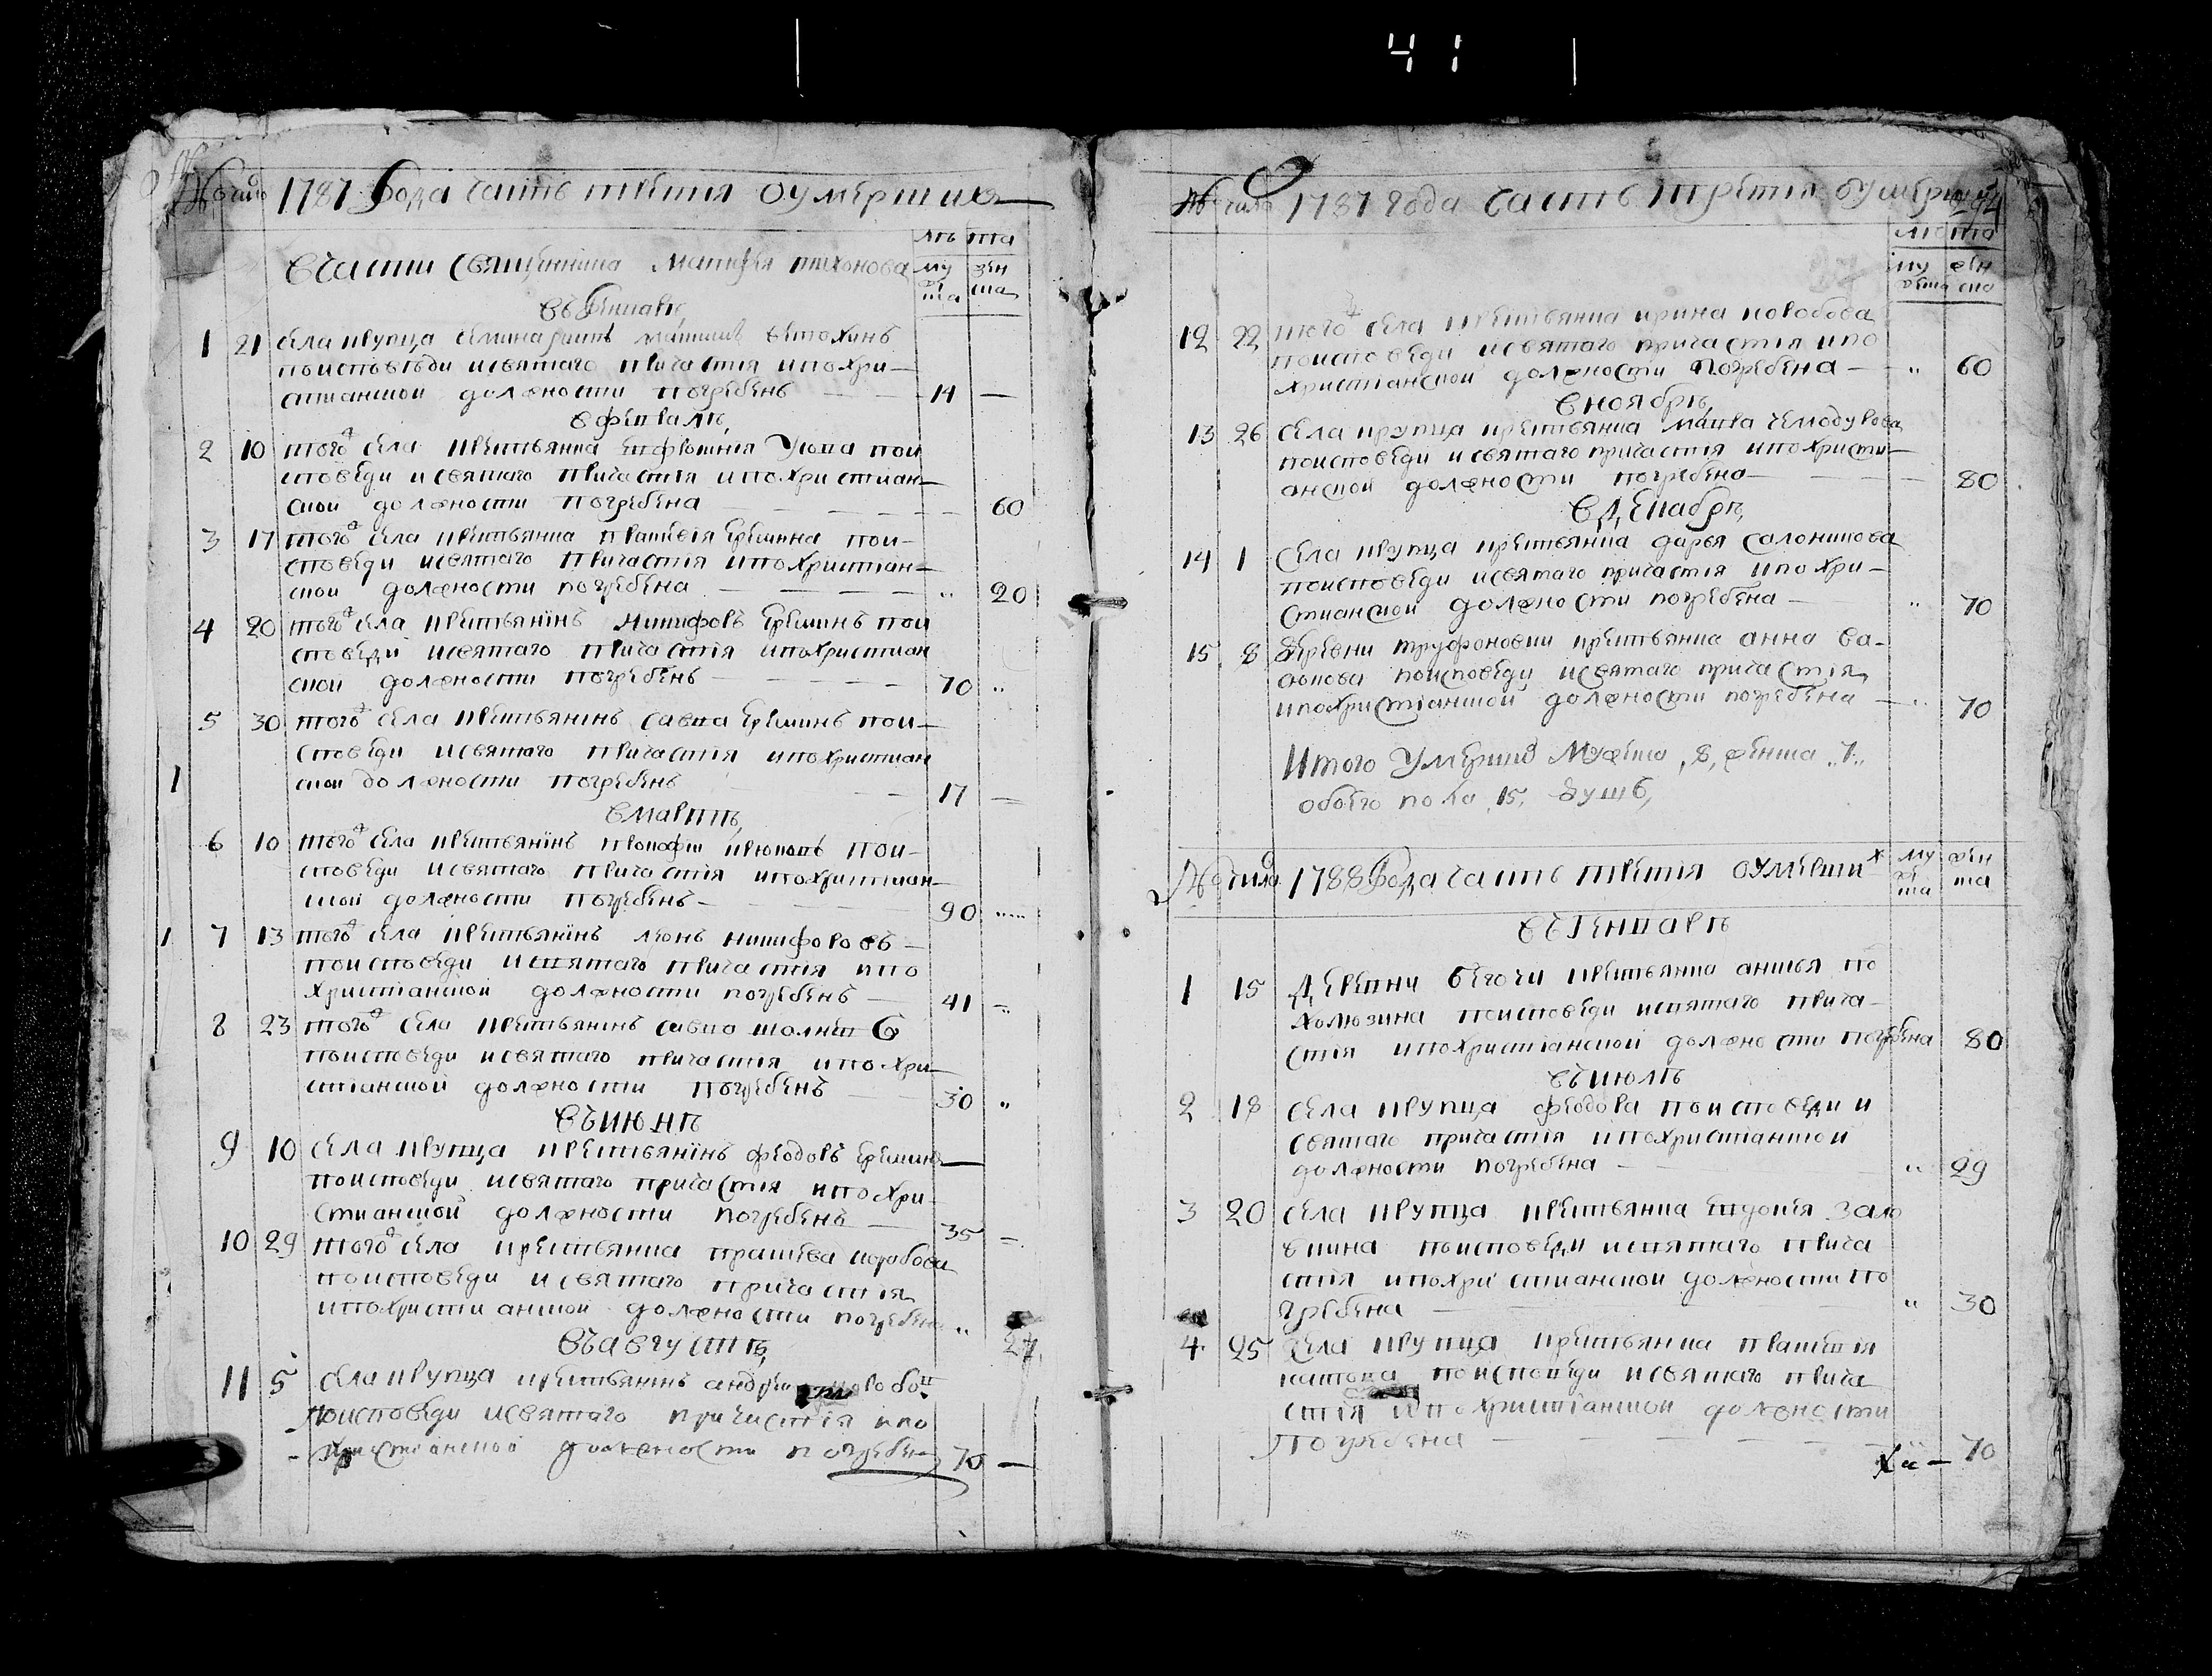 41
число 1787 года часть третия оумерших
лѣ та
в части священника матфея тихонова му жен
жеска ска
въ генваре
1 21 села крупца
поисповѣди исвятаго причастия ипохри-
стианской должности погребенъ 14 —
в феврале
2 10 того села крестьянка пои
споведи исвятаго причастия ипохристиан-
ской должности погребена 60
3 17 того села крестьянка еремина пои-
споведи исвятаго причастия ипохристиан-
ской должности погребена „ 20
4 20 того села крестьянинъ никифоръ ереминъ пои
споведи исвятаго причастия ипохристиан
ской должности погребенъ 70 „
5 30 того села крестьянинъ савва ереминъ пои-
споведи исвятаго причастия ипохристиан
1 ской должности погребенъ 17 —
в марте
6 10 того села крестьянинъ прокофий пои-
споведи исвятаго причастия ипохристиан-
ской должности погребенъ 90
1 7 13 того села крестьянинъ никифоровъ
поисповеди исвятаго причастия ипо
христианской должности погребенъ 41
8 23 того села крестьянинъ савва
поисповеди исвятаго причастия ипохри-
стианской должности погребенъ 30 „
въ июне
9 10 села крупца крестьянинъ феодоръ ереминъ
поисповеди исвятаго причастия ипохри-
стианской должности погребенъ 35
10 29 того села крестьянка
поисповеди исвятаго причастия
ипохристианской должности погребена „ 27
въ августе
11 5 села крупца крестьянинъ андрей
поисповеди исвятаго причастия ипо
христианской должности погребен —
число 1787 года часть третия оумерш
лѣ та
му жен
жеска ска
12 22 того села крестьянка ирина коробова
поисповеди исвятаго причастия ипо
христианской должности погребена — „ 60
в ноябре
13 26 села крупца крестьянка чемодурова
поисповеди исвятаго причастия ипохристи-
анской должности погребена 80
в декабре
14 1 села крупца крестьянка дарья солоникова
поисповеди исвятаго причастия ипохри-
стианской должности погребена — „ 70
15 8 деревни труфоновки крестьянка анна ва-
поисповеди исвятаго причастия
ипохристианской должности погребена „ 70
Итого умерших мужеска „8„ женска „7„
обоего пола 15 душъ
число 1788 года часть третия оумерших му жен
жеска ска
въ генваре
1 15 деревни бегочи крестьянка по
холюзина поисповеди исвятаго прича-
стия ипохристианской должности погребена 80
въ июле
2 18 села крупца феодора поисповеди и
святаго причастия ипохристианской
должности погребена — „ 29
3 20 села крупца крестьянка
поисповеди исвятаго прича
стия ипохристианской должности по
гребена — „ 30
4 25 села крупца крестьянка
поисповеди исвятаго прича
стия ипохристианской должности
погребена — 70